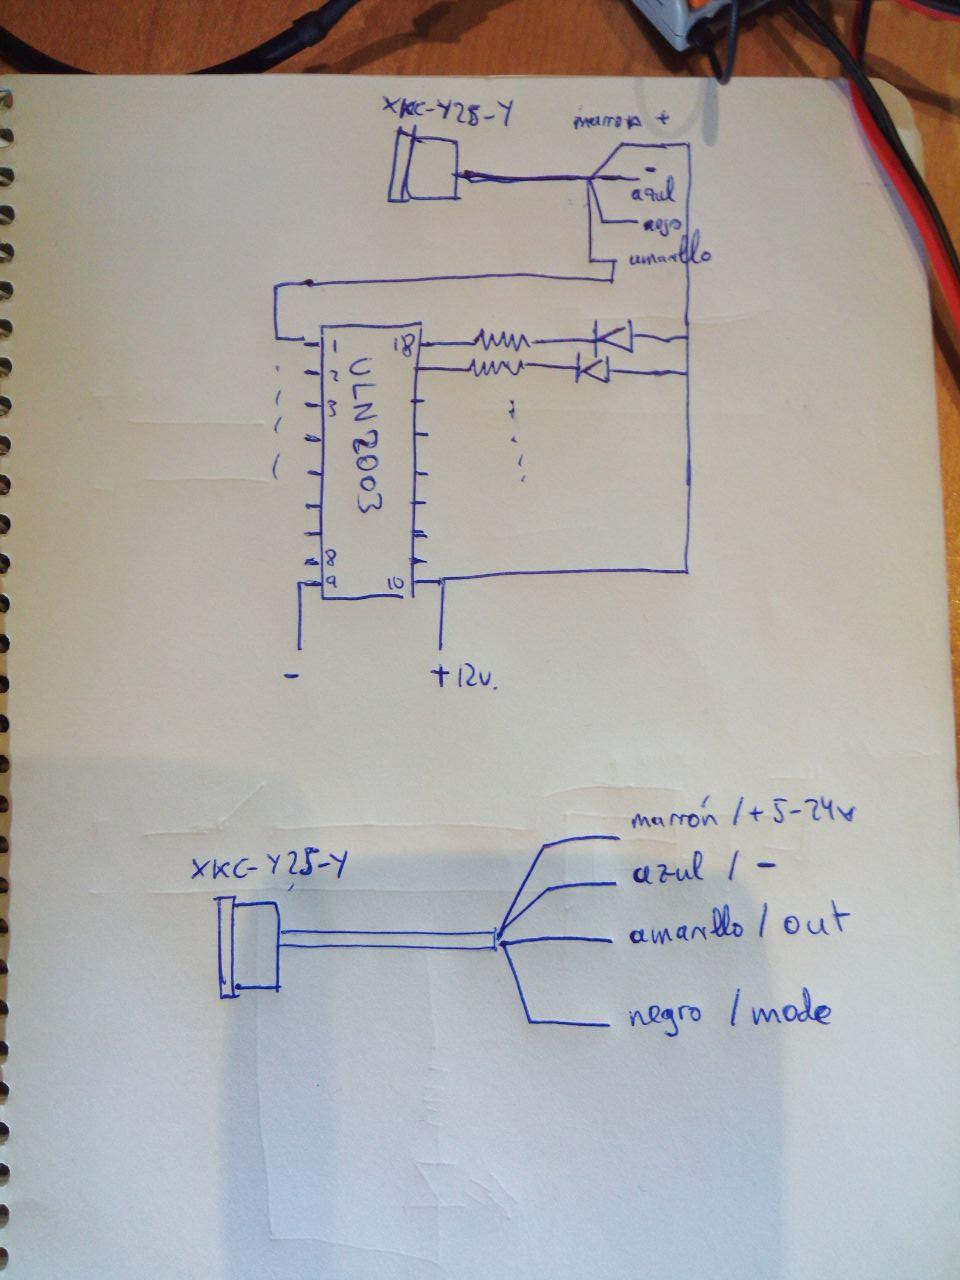 XKC-Y25-Y
marron +
-
azul
negro
amarillo
1 18
2
3
ULN2003
8
9 10
- +12v.
marrón /+5-24v
XKC-Y25-Y
azul / -
amarillo / out
negro / mode